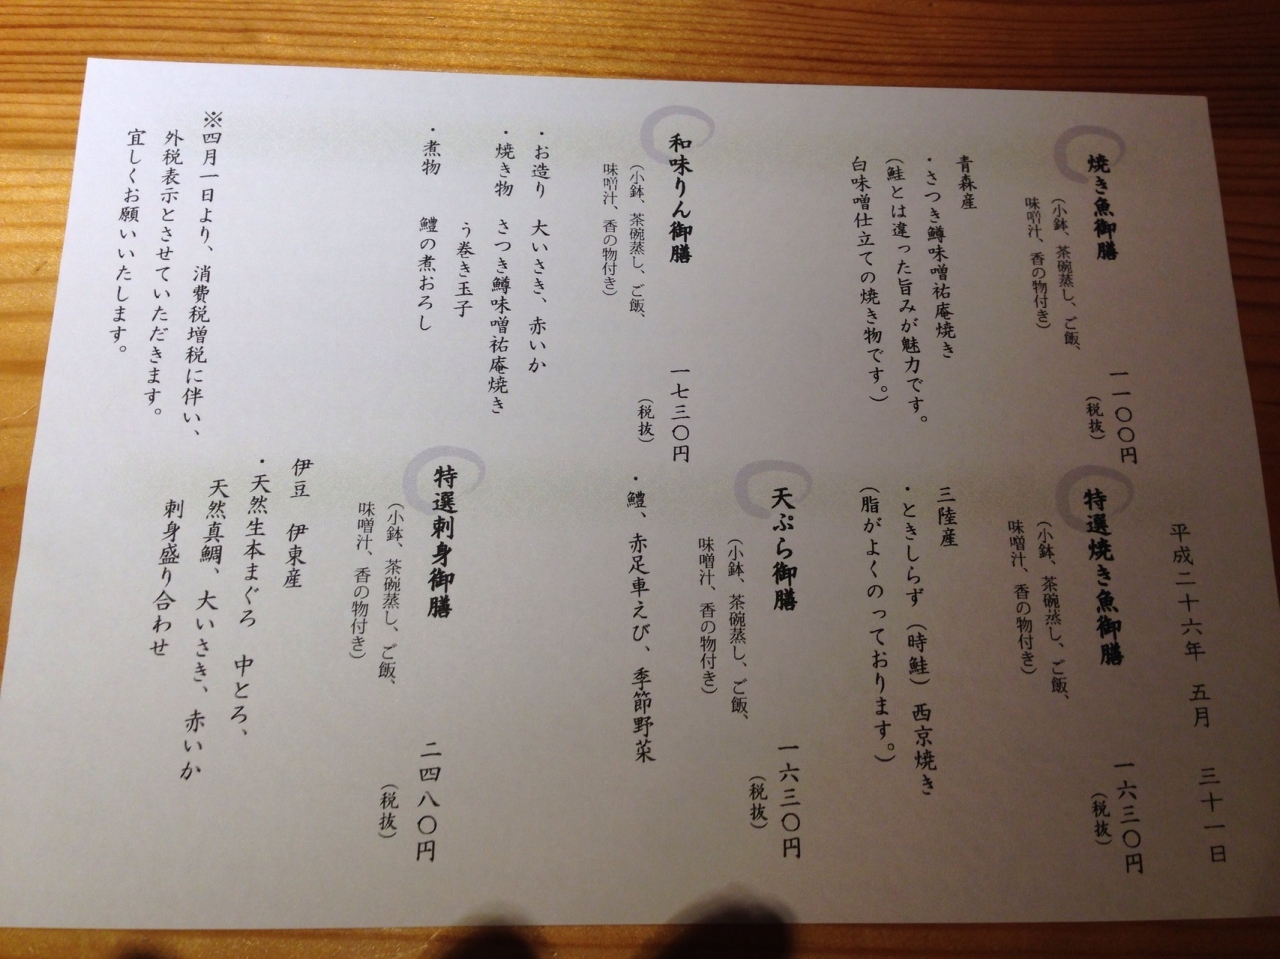 平成二十六年 五月 三十一日
焼き魚御膳
(小鉢、茶碗蒸し、ご飯、
味噌汁、香の物付き)
一一〇〇円
(税抜)
青森産
・さつき鱒味噌祐庵焼き
(鮭とは違った旨みが魅力です。
白味噌仕立ての焼き物です。)
特選焼き魚御膳
(小鉢、茶碗蒸し、ご飯、
味噌汁、香の物付き)
一六三〇円
(税抜)
三陸産
・ときしらず(時鮭)西京焼き
(脂がよくのっております。)
和味りん御膳
(小鉢、茶碗蒸し、ご飯、
味噌汁、香の物付き)
一七三〇円
(税抜)
・お造り 大いさき、赤いか
・焼き物 さつき鱒味噌祐庵焼き
う巻き玉子
・煮物 鱧の煮おろし
天ぷら御膳
(小鉢、茶碗蒸し、ご飯、
味噌汁、香の物付き)
一六三〇円
(税抜)
・鱧、赤足車えび、季節野菜
特選刺身御膳
(小鉢、茶碗蒸し、ご飯、
味噌汁、香の物付き)
二四八〇円
(税抜)
伊豆 伊東産
・天然生本まぐろ 中とろ、
天然真鯛、大いさき、赤いか
刺身盛り合わせ
※四月一日より、消費税増税に伴い、
外税表示とさせていただきます。
宜しくお願いいたします。